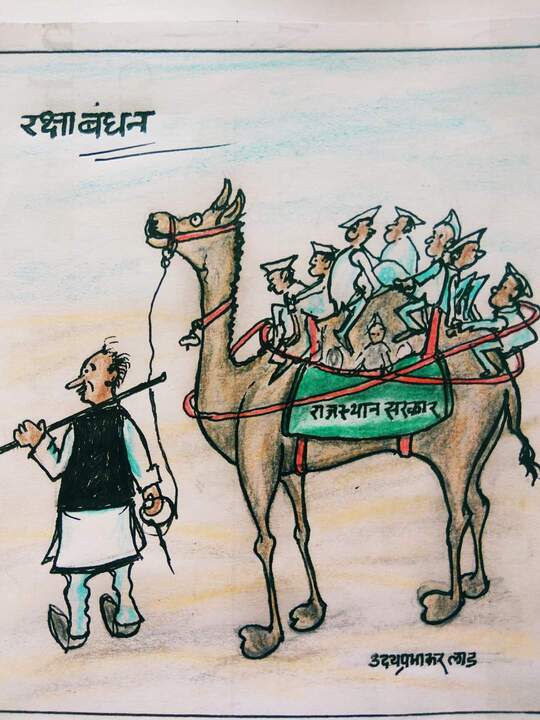 रक्षाबंधन
राजस्थान सरकार
उदयप्रभाकर लाड